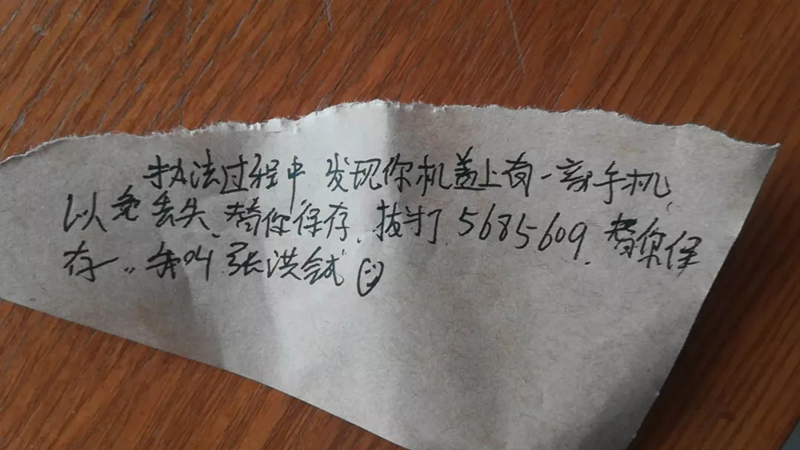 执法过程中 发现你机盖上有一部手机,
以免丢失、替你保存. 拔打 5685609. 替你保
存.. 我叫 张洪